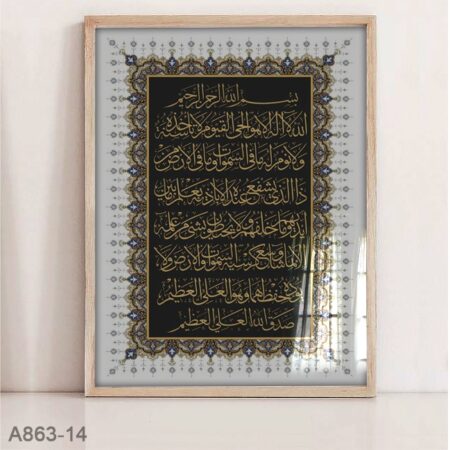 بسم الله الرحمن الرحيم
الله لا اله الا هو الحي القيوم لا تاخذه سنة
ولا نوم له ما في السموات وما في الارض من
ذا الذي يشفع عنده الا باذنه يعلم ما بين
ايديهم وما خلفهم ولا يحيطون بشيء من علمه
الا بما شاء وسع كرسيه السموات والارض ولا
يؤده حفظهما وهو العلي العظيم
صدق الله العلي العظيم
A863-14